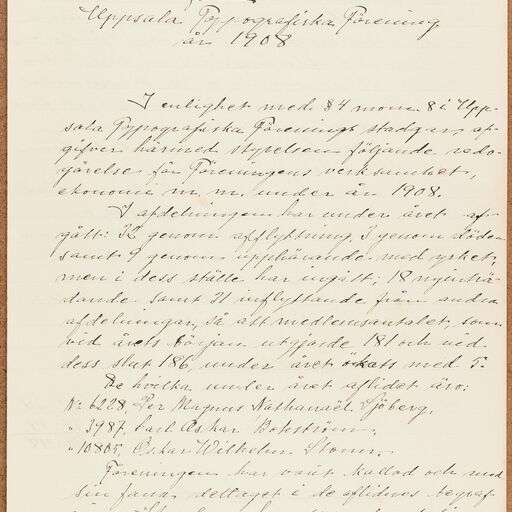 Uppsala Typografiska Förening
år 1908
I enlighet med § 4 mom. 8 i Upp-
sala Typografiska Förenings stadgar, af-
gifver härmed styrelsen följande redo-
görelse för Föreningens verksamhet,
ekonomi m. m. under år 1908.
I afdelningen har under året af-
gått: 32 genom afflyttning, 3 genom döden
samt 9 genom upphörande med yrket,
men i dess ställe har ingått; 18 nyinträ-
dande samt 31 inflyttande från andra
afdelningar, så att medlemsantalet, som
vid årets början utgjorde 181 och vid
dess slut 186, under året ökats med 5.
De hvilka under året aflidit äro:
No 6228, Per Magnus Nathanaël Sjöberg,
" 3987, Carl Oskar Bokström,
" 10805, Oskar Wilhelm Storm.
Föreningen har varit kallad och med
sin fana deltagit i de aflidnes begraf-